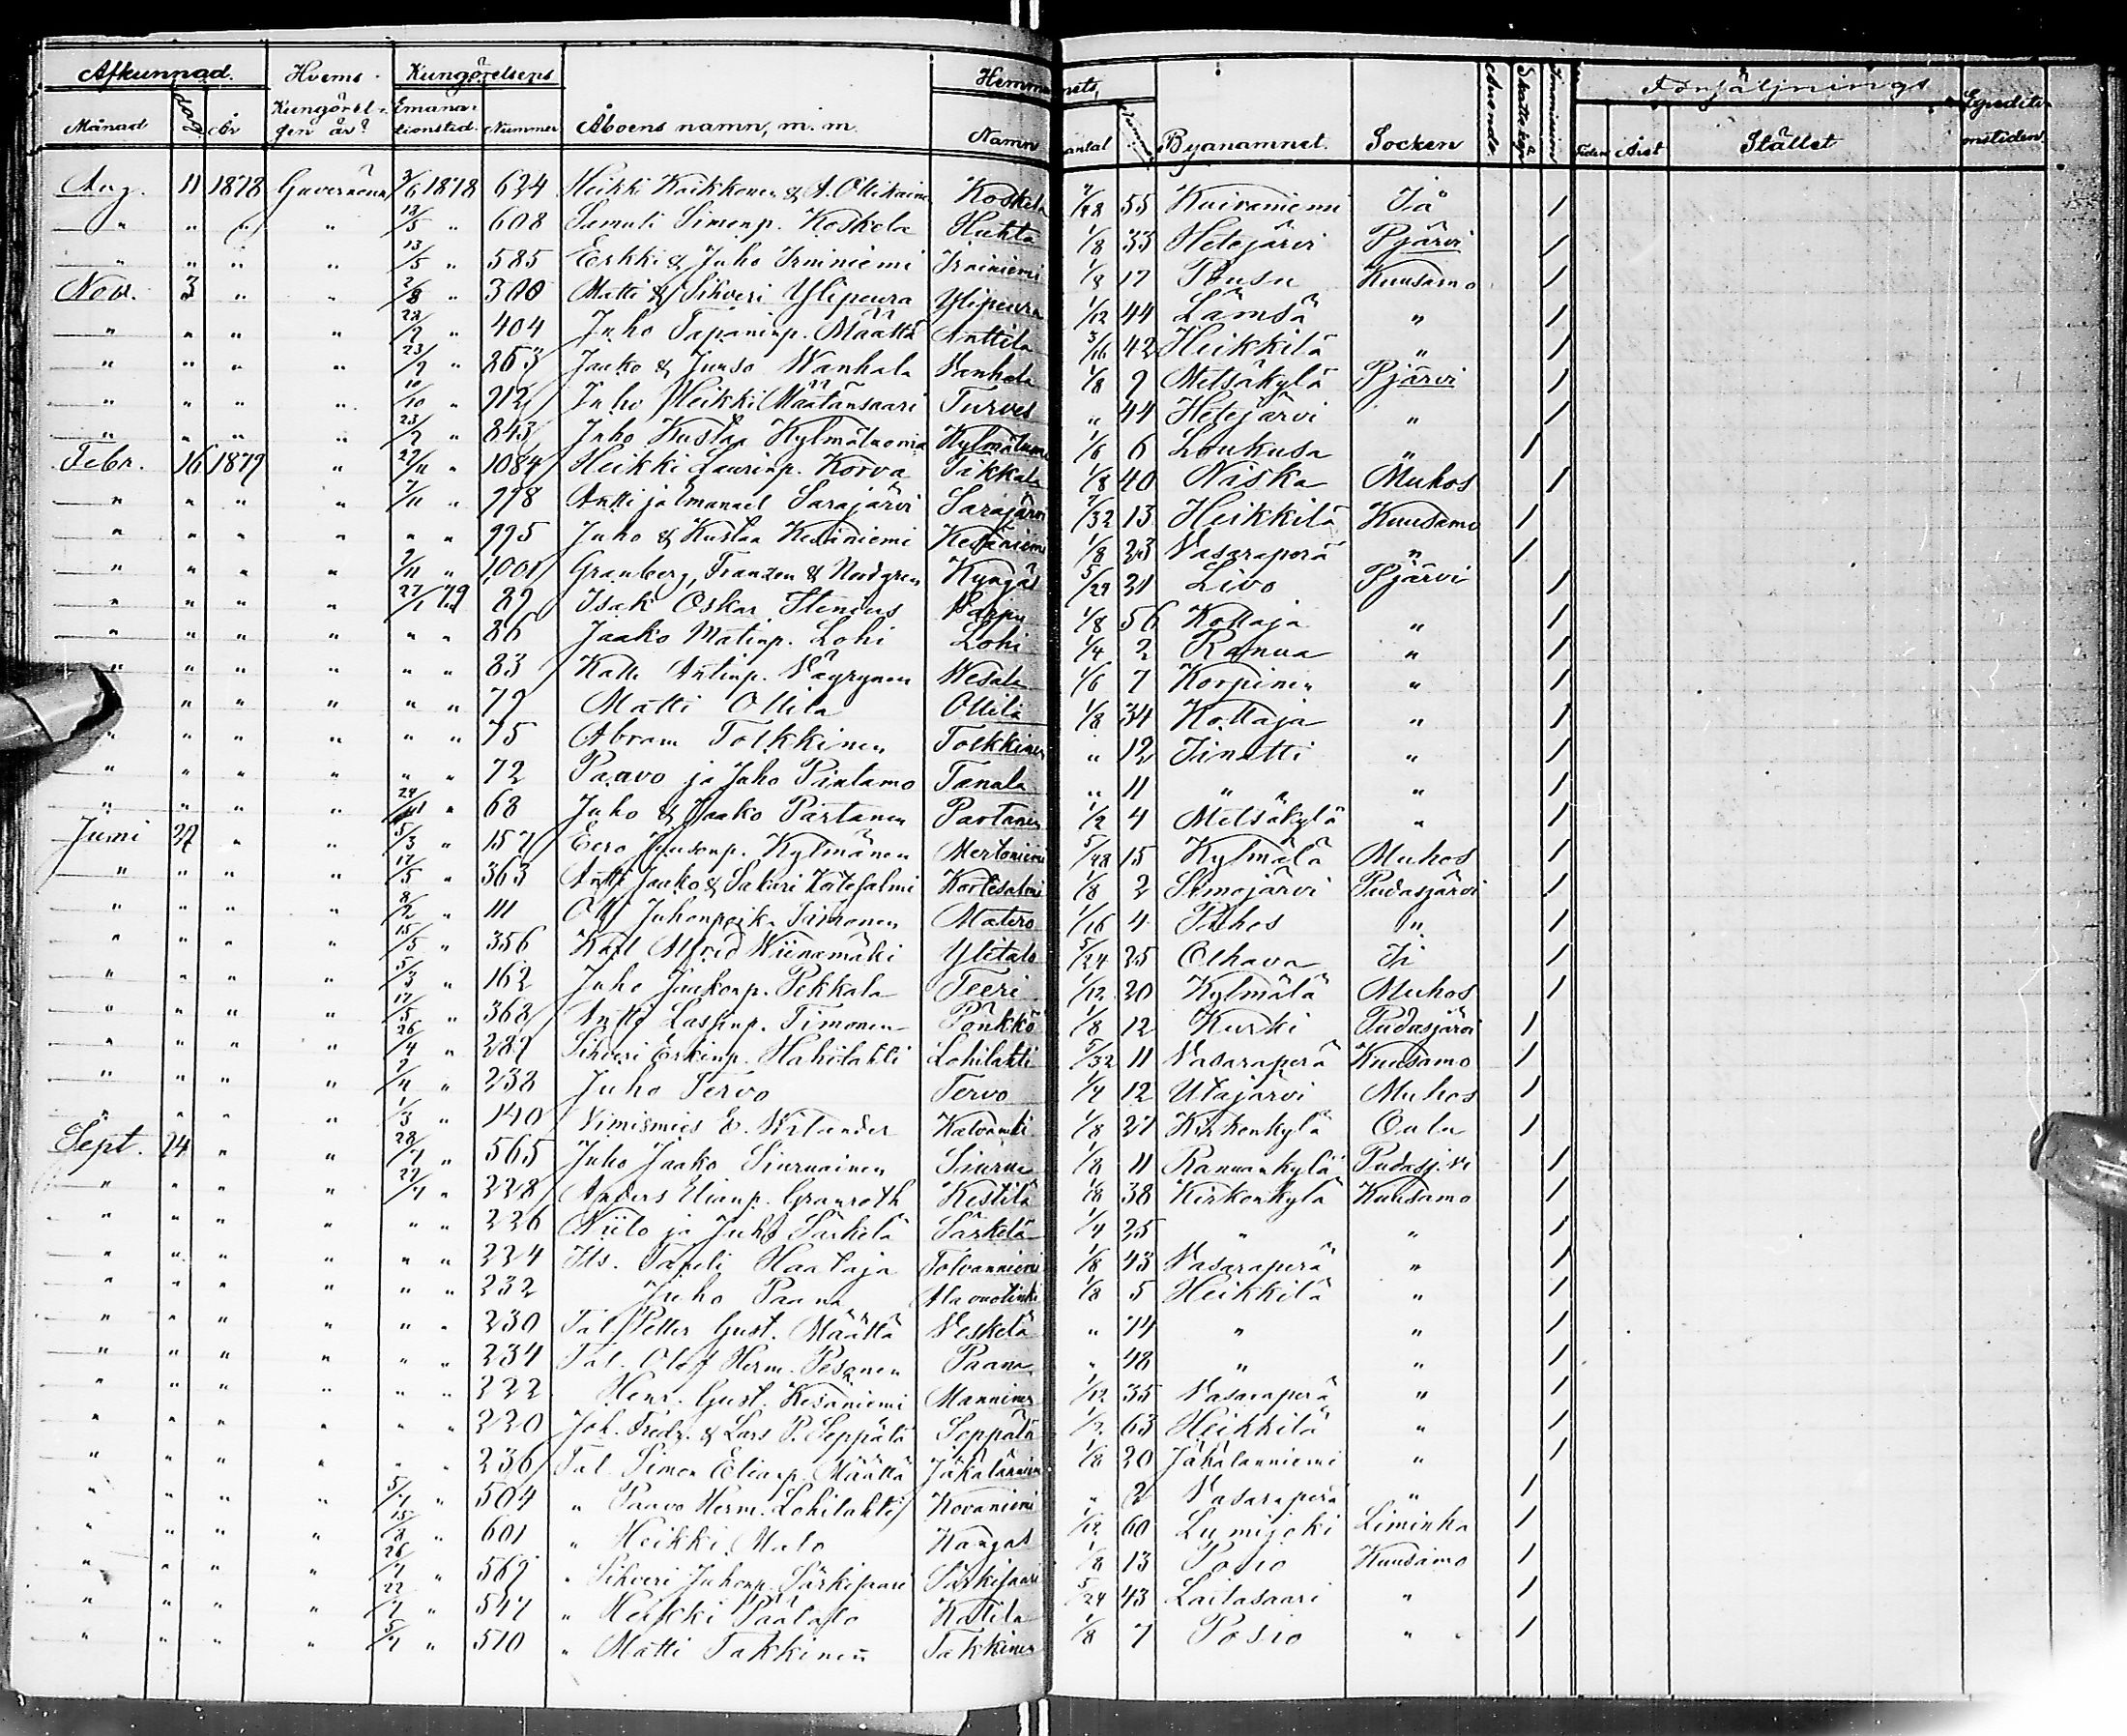 Afkunnad. Hvems Kungörelsens Hemmanets, Försäljnings
Månad dag år Kungörelsen är? Emanationstid. Nummer Åboens namn, m. m. Namn antal Byanamnet. Socken Anends. Skatteköp Immission Tiden Året Stället Expeditionstiden
Aug. 11 1878 Guvernörens 3/6 1878 624 Heikki Kaikkonen & A. Ollikainen Koskela 55 Kuivaniemi Ijå /
" " " " 13/5 " 608 Samuli Simonp. Koskela Huhta 1/8 33 Hetejärvi Pjärvi /
" " " " 13/5 " 585 Erkki & Juho Irniniemi Irniniemi 1/8 17 Kuusamo /
Nov. 3 " " 2/8 " 300 Matti & Sihveri Ylipeura Ylipeura 1/12 44 Lämsä " /
" " " " " 404 Juho Tapaninp. Määttä Anttila 3/16 42 Heikkilä " /
" " " " 23/7 " 263 Jaako & Junso Wanhala Vanhala 1/8 9 Metsäkylä Pjärvi /
" " " " 10/10 " 912 Juho Heikki Määtänsaari Turves " 44 Hetejärvi " /
" " " " 23/7 " 843 Juho Kustaa Kylmäluoma Kylmäluoma 6 Loukusa " /
Febr. 16 1879 " 27/11 " 1084 Heikki Laurinp. Korva Pikkala 1/8 40 Niska Muhos /
" " " " 7/11 " 998 Antti ja Emanuel Sarajärvi Sarajärvi 7/32 13 Heikkilä Kuusamo /
" " " " " " 995 Juho & Kustaa Kesäniemi Kesäniemi 1/8 23 Vasaraperä " /
" " " " 7/11 " 1001 Granberg, Franzen & Nordgren Kyngäs 5/24 31 Livo Pjärvi /
" " " " 27/1 79 89 Isak Oskar Stenius 1/8 56 Kollaja " /
" " " " " " 86 Jaako Matinp. Lohi Lohi 1/4 2 Ranua " /
" " " " " " 83 Kalle Antinp. Väyrynen Wesala 1/6 7 Korpinen " /
" " " " " 79 Matti Ollila Ollila 1/8 34 Kollaja " /
" " " " " " 75 Abram Tolkkinen Tolkkinen " 12 Iinatti " /
" " " " " " 72 Paavo ja Juho Pintamo Tanala " 11 " " " /
" " " " " 68 Juho & Jaako Partanen Partanen 1/2 4 Metsäkylä " /
Juni 27 " 5/3 " 157 Eero Junsonp. Kylmänen Mertoniemi 5/48 15 Kylmälä Muhos /
" " " " 17/5 " 363 Antti Jaako & Sakari Kortesalmi Kortesalmi 1/8 2 Simojärvi Pudasjärvi /
" " " " 8/2 " 111 Olli Juhonpoika Matero 1/16 4 Puhos " /
" " " " 15/5 " 356 Karl Alfred Wiinamäki Ylitalo 5/24 25 Olhava Ii /
" " " " 5/3 " 162 Juho Jaakonp. Pekkala Teeri 1/12 20 Kylmälä Muhos /
" " " " 17/5 " 368 Antti Lassinp. Timonen Pönkkö 1/8 12 Kurki Pudasjärvi /
" " " " 26/4 " 289 Sihveri Erkinp. Hahilahti Lohilahti 5/32 11 Vasaraperä Kuusamo /
" " " " 2/4 " 238 Juho Tervo Tervo 1/4 12 Utajärvi Muhos /
" " " " 1/3 " 140 Nimismies E. Wirlander 1/8 27 Kirkonkylä Oulu /
Sept. 14 " " 28/7 " 565 Juho Jaako Siuruainen Siurua 1/8 11 Ranuankylä Pudasj.vi /
" " " " 22/4 " 228 Anders Elianp. Granroth Kestilä 1/8 38 Kirkonkylä Kuusamo /
" " " " " " 226 Niilo ja Juho Särkelä Särkelä 1/4 25 " " /
" " " " " " 224 Its. Taneli Haataja Tolvanniemi 1/8 43 Vasaraperä " /
" " " " " " 232 Juho Paana Alavuotinki 1/8 5 Heikkilä " /
" " " " " " 230 Tal. Petter Gust. Määttä Veskelä " 14 " " /
" " " " " " 234 Tal. Olof Herm. Pesonen Paana " 48 " " /
" " " " " " 222 Henr. Gust. Kesäniemi Manninen 1/12 35 Vasaraperä " /
" " " " " " 220 Joh. Fredr. & Lars P. Seppälä Seppälä 1/2 63 Heikkilä " /
" " " " " " 236 Tal. Simon Elianp. Määttä Jäkälänniemi 1/8 20 Jäkälänniemi " /
" " " " 5/7 " 504 " Paavo Herm. Lohilahti Kovaniemi " 2 Vasaraperä " /
" " " " 15/8 " 601 " Heikki Malo Kangas 1/12 60 Lumijoki Liminka /
" " " " 26/7 " 569 " Sihveri Juhonp. Särkisaari Särkisaari 1/8 13 Posio Kuusamo /
" " " " 22/7 " 547 " Heikki Päätalo Katila 5/24 43 Laitasaari " /
" " " " 5/7 " 510 " Matti Takkinen Takkinen 1/8 7 Posio " /